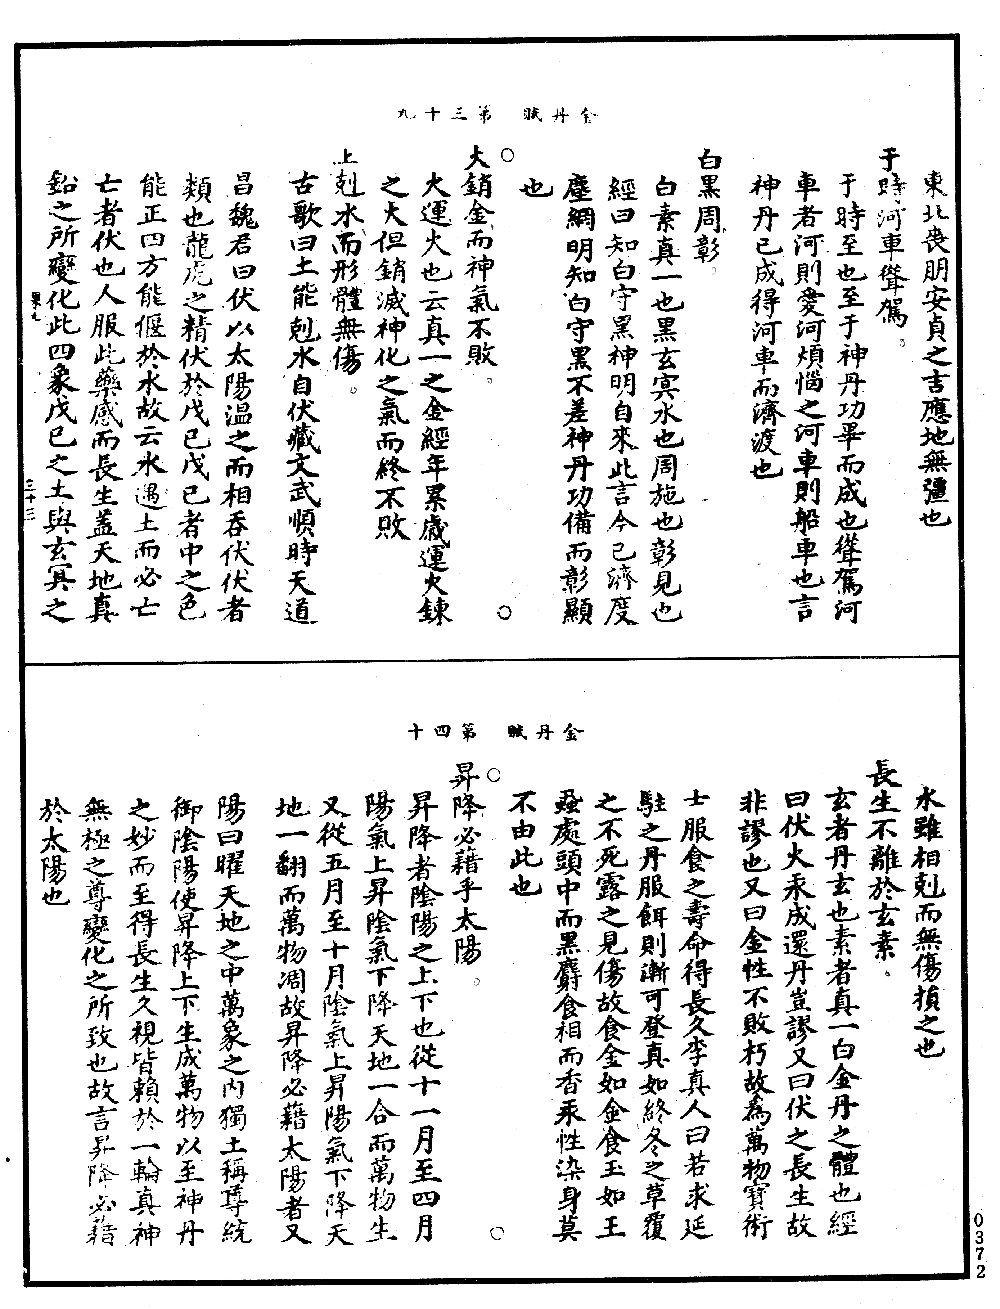 金丹賦　第三十九
東北喪朋安貞之吉應地無彊也
于時河車聳駕。
于時至也至于神丹功畢而成也聳駕河
車者河則愛河煩惱之河車則船車也言
神丹已成得河車而濟渡也
白黑周彰。
白素真一也黑玄冥水也周施也彰見也
經曰知白守黑神明自來此言今已濟度
塵網明知白守黑不差神丹功備而彰顯
也
○　○
火銷金而神氣不敗。
大運火也云真一之金經年累歲運火鍊
之火但銷滅神化之氣而終不敗
土剋水而形體無傷。
古歌曰土能剋水自伏藏文武順時天道
昌魏君曰伏以太陽温之而相吞伏伏者
類也龍虎之精伏於戊己戊己者中之色
能正四方能偃於水故云水遇土而必亡
亡者伏也人服此藥感而長生蓋天地真
鉛之所變化此四象戊己之土與玄冥之
三十三
金丹賦　第四十
水雖相剋而無傷損之也
長生不離於玄素。
玄者丹玄也素者真一白金丹之體也經
曰伏火汞成還丹豈謬又曰伏之長生故
非謬也又曰金性不敗朽故為萬物寶術
士服食之壽命得長久李真人曰若求延
駐之丹服餌則漸可登真如終冬之草覆
之不死露之見傷故食金如金食玉如玉
蝨處頭中而黑麝食柏而香汞性染身莫
不由此也
○　○
昇降必藉乎太陽。
昇降者陰陽之上下也從十一月至四月
陽氣上昇陰氣下降天地一合而萬物生
又從五月至十月陰氣上昇陽氣下降天
地一翻而萬物凋故昇降必藉太陽者又
陽曰曜天地之中萬象之内獨土稱尊統
御陰陽使昇降上下生成萬物以至神丹
之妙而至得長生久視皆賴於一輪真神
無極之尊變化之所致也故言昇降必藉
於太陽也
0372